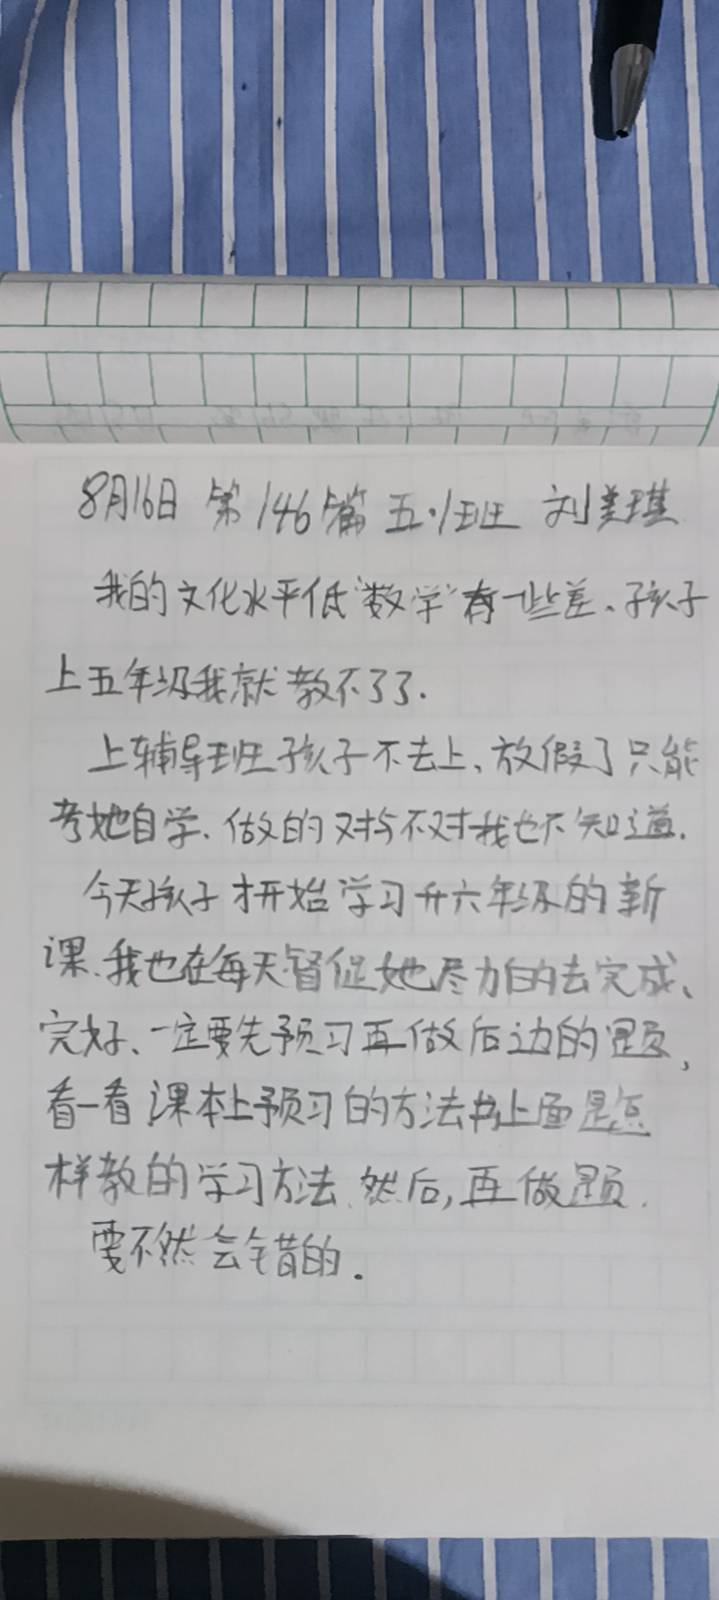 8月16日 第146篇 五·1班 刘美琪
我的文化水平低"数学"有一些差、孩子
上五年级我就教不了了.
上辅导班孩子不去上、放假了只能
考她自学.做的对与不对我也不知道.
今天孩子才开始学习升六年级的新
课、我也在每天督促她尽力的去完成、
完好、一定要先预习再做后边的题,
看一看课本上预习的方法书上面是怎
样教的学习方法.然后,再做题.
要不然会错的.